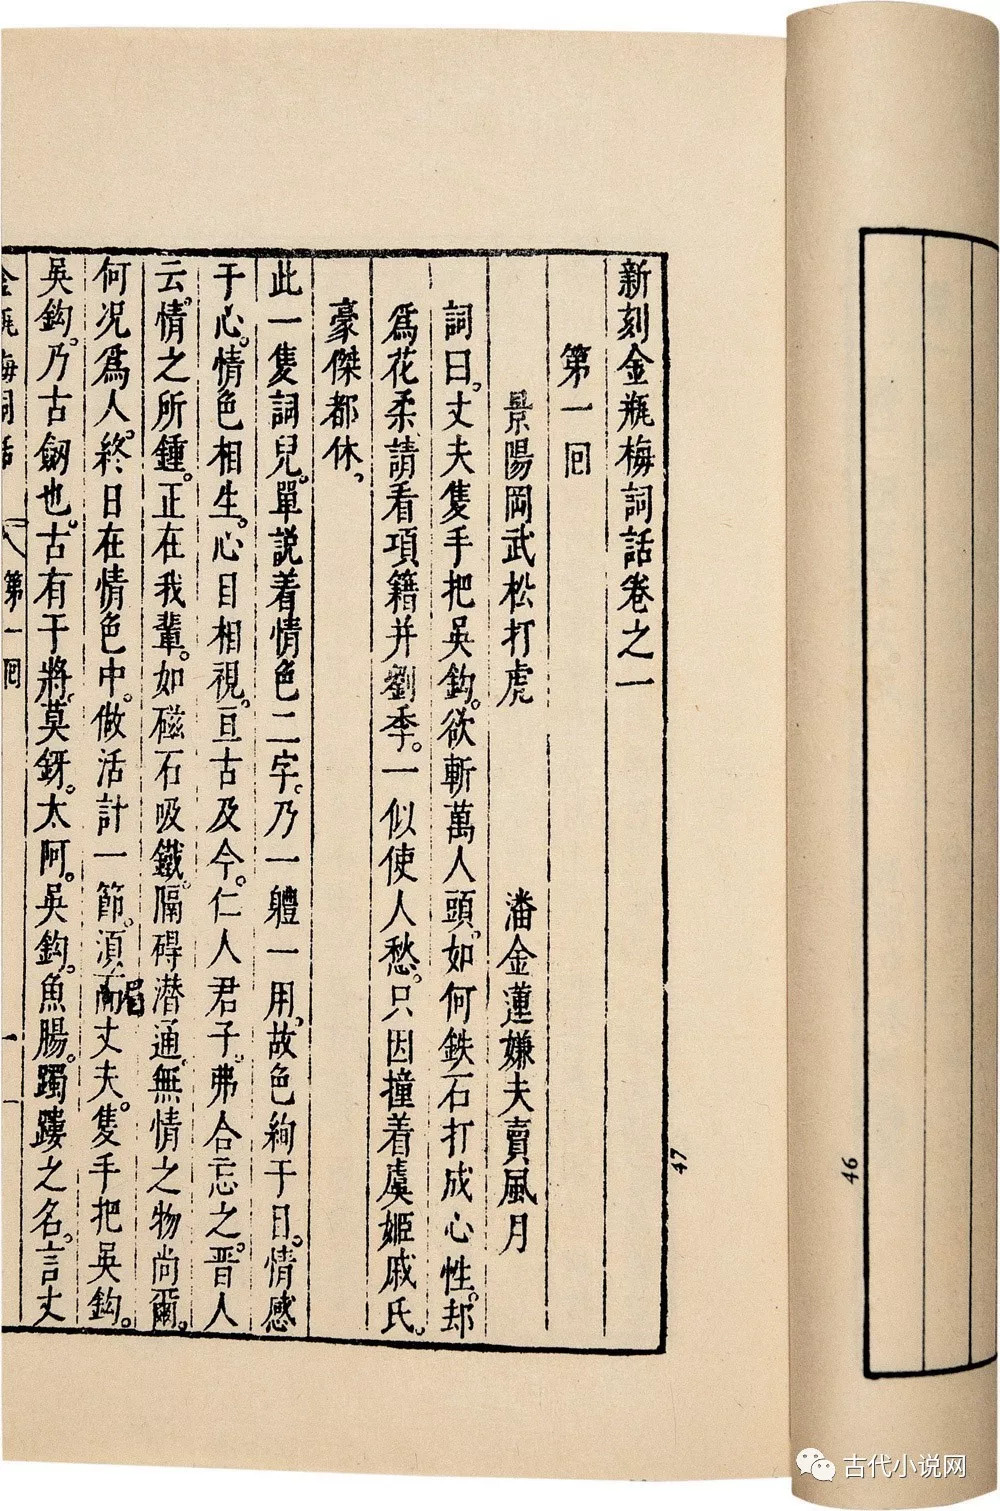 新刻金瓶梅詞話卷之一
第一囘
景陽岡武松打虎 潘金蓮嫌夫賣風月
詞曰。丈夫隻手把吳鈎。欲斬萬人頭。如何鉄石打成心性。却
爲花柔請看項籍并劉季。一似使人愁。只因撞着虞姬戚氏。
豪傑都休。
此一隻詞兒。單説着情色二字。乃一體一用。故色絢于目。情感
于心。情色相生。心目相視。亘古及今。仁人君子。弗合忘之。晋人
云。情之所鍾。正在我輩。如磁石吸鐵。隔碍潜通。無情之物尚爾。
何况爲人。終日在情色中。做活計一節。須而丈夫。隻手把吳鈎。
眉
吳鈎。乃古劒也。古有干將。莫釾。太阿。吳鈎。魚腸。躅䠱之名。言丈
金瓶梅詞話 第一囘 一
47
46
古代小说网